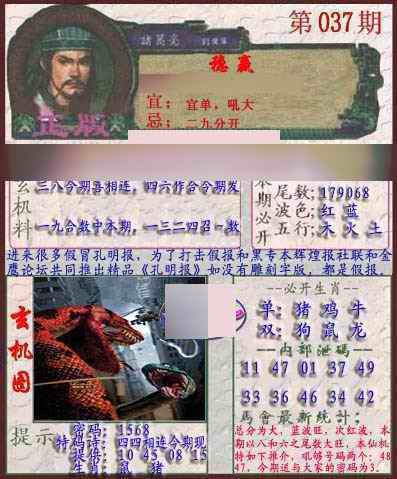 第037期
諸葛亮
稳赢
宜：宜单，吼大
忌：二九分开
正版
三八今期喜相连，四六作合今期发
玄机料
一九合数中本期，一三二四召一数
本期必开
尾数：179068
波色：红 蓝
五行：木 火 土
进来很多假冒孔明报，为了打击假报和黑专本辉煌报社联和金
鹰论坛共同推出精品《孔明报》如没有雕刻字版，都是假报。
玄机图
--必开生肖--
单：猪 鸡 牛
双：狗 鼠 龙
--内部泄码--
11 47 01 37 49
33 36 46 34 42
馬會最新统計：
总分为大，蓝波旺，次红波，本
期以八和六之尾数大旺，本仙机
特如下推介，吼够号码两个：48
47，今期送与大家的密码为3．
提示
密码：1568
特码诗：四四相连今期现
特码：10 45 08 15
生肖：鼠 猪